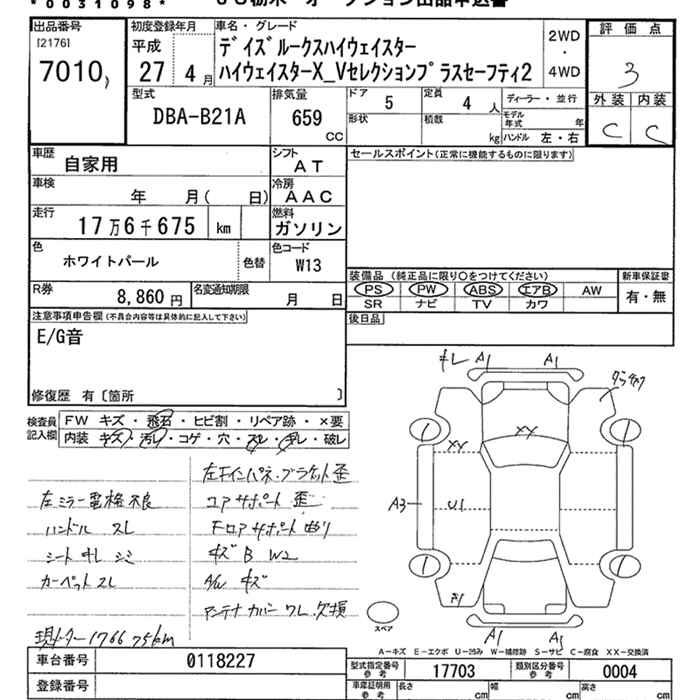 *0031098*
出品番号
[2176]
7010
初度登録年月
平成
27年4月
車名・グレード
デイズルークスハイウェイスター
ハイウェイスターX_Vセレクションプラスセーフティ2
2WD
・
4WD
評価点
3
外装 内装
C C
型式
DBA-B21A
排気量
659
CC
ドア
5
定員
4人
形状
積載
kg
ディーラー・並行
モデル年式
年
ハンドル 左・右
車歴
自家用
シフト
AT
セールスポイント(正常に機能するものに限ります)
車検
年 月( 日)
冷房
AAC
走行
17万6千675 km
燃料
ガソリン
色
ホワイトパール
色替
色コード
W13
R券
8,860円
名変通知期限
月 日
装備品 (純正品に限り○をつけてください)
PS PW ABS エアB AW
SR ナビ TV カワ
新車保証書
有・無
後日品
注意事項申告欄(不具合内容等は具体的に記入して下さい)
E/G音
修復歴 有〔箇所 〕
検査員記入欄
FW キズ・飛石・ヒビ割・リペア跡・×要
内装 キズ・汚レ・コゲ・穴・スレ・キレ・破レ
左ミラー電格不良
ハンドル スレ
シート キレ シミ
カーペット スレ
現メーター176675km
コアサポート 歪
Fロアサポート 曲り
キズB W2
A/W キズ
アンテナカバー ワレ欠損
キレ A1 A1
XX XX
A3 U1
A1 A1
スペア
A-キズ E-エクボ U-凹み W-補修跡 S-サビ C-腐食 XX-交換済
車台番号
0118227
登録番号
型式指定番号
参考
17703
類別区分番号
参考
0004
車庫証明用
参考
長さ cm
幅 cm
高さ cm